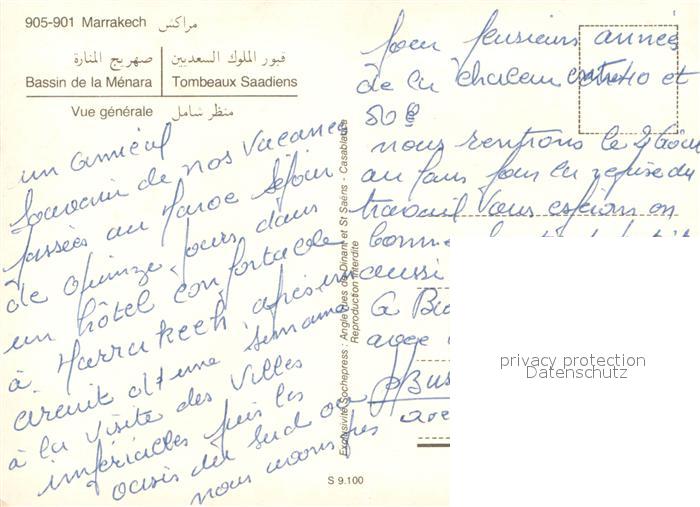 905-901 Marrakech مراكش
صهريج المنارة قبور الملوك السعديين
Bassin de la Ménara Tombeaux Saadiens
Vue générale منظر شامل
un amical
Souvenir de nos vacances
passées au Maroc Séjour
de quinze jours dans
un hôtel confortable
à Marrakech après un
circuit d'une semaine
à la visite des Villes
impériales puis les
oasis du Sud où
nous avons très
pour plusieurs années
de la chaleur entre 40 et
50°
nous rentrons le
au pour la reprise du
travail Vous espérons en
bonne
aussi
a
avec
Exclusivité Sochepress : Angle rues de Dinant et St Saëns - Casablanca
Reproduction interdite
S 9.100
privacy protection
Datenschutz